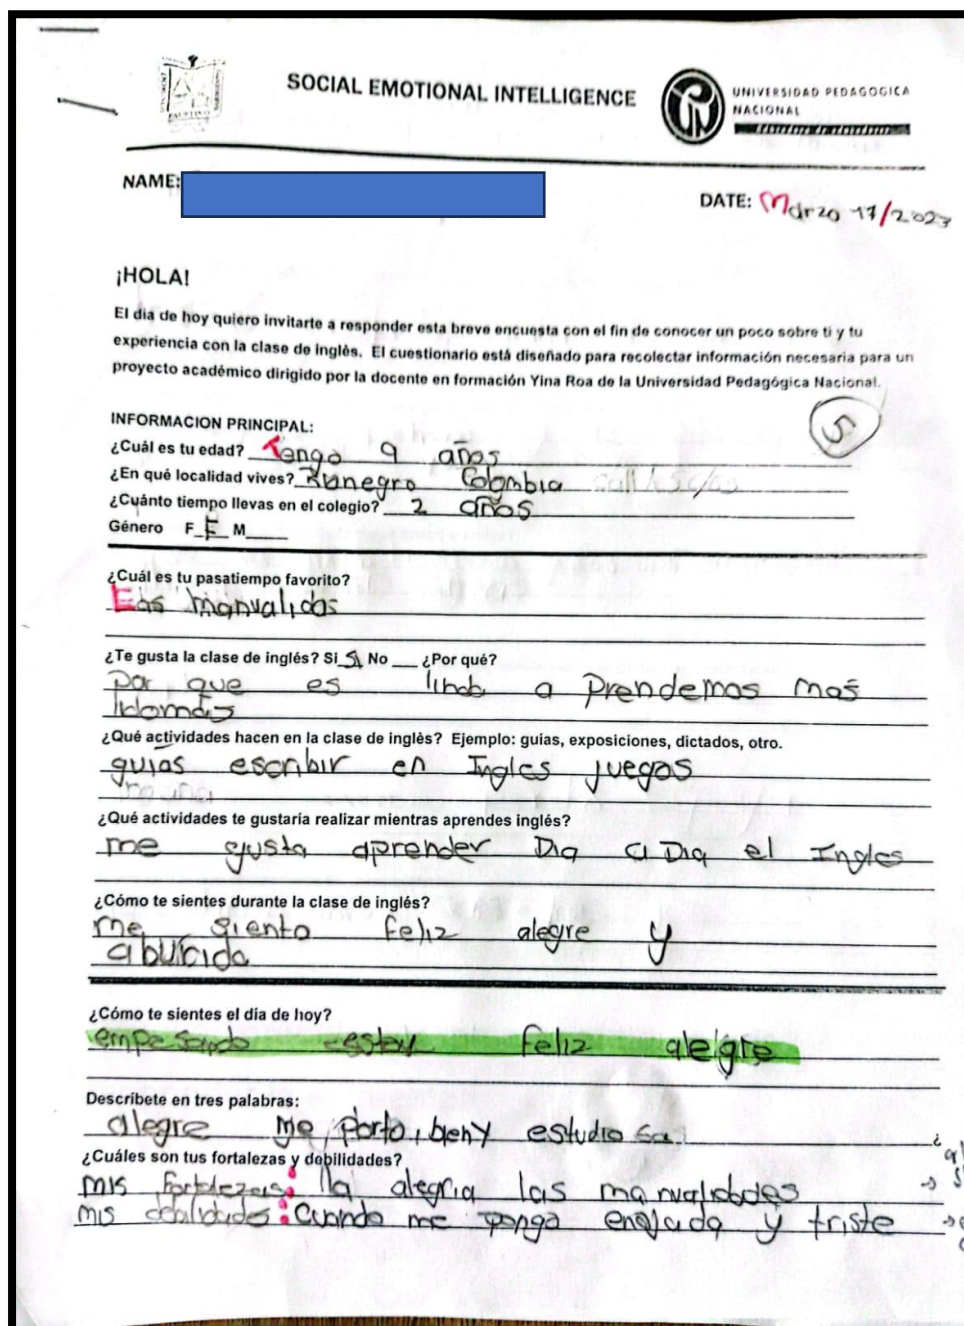 SOCIAL EMOTIONAL INTELLIGENCE
UNIVERSIDAD PEDAGOGICA
NACIONAL
NAME:
DATE: Marzo 17/2023
¡HOLA!
El día de hoy quiero invitarte a responder esta breve encuesta con el fin de conocer un poco sobre ti y tu
experiencia con la clase de inglés. El cuestionario está diseñado para recolectar información necesaria para un
proyecto académico dirigido por la docente en formación Yina Roa de la Universidad Pedagógica Nacional.
5
INFORMACION PRINCIPAL:
¿Cuál es tu edad? Tengo 9 años
¿En qué localidad vives? Rionegro Colombia
¿Cuánto tiempo llevas en el colegio? 2 años
Género F_F_ M____
¿Cuál es tu pasatiempo favorito?
Las manualidas
¿Te gusta la clase de inglés? Si Si No ___ ¿Por qué?
por que es lindo a prendemos mas
idomas
¿Qué actividades hacen en la clase de inglés? Ejemplo: guías, exposiciones, dictados, otro.
guias escribir en Ingles juegos
¿Qué actividades te gustaría realizar mientras aprendes inglés?
me gusta aprender Dia a Dia el Ingles
¿Cómo te sientes durante la clase de inglés?
me siento feliz alegre y
aburida
¿Cómo te sientes el día de hoy?
empesando estoy feliz alegre
Descríbete en tres palabras:
alegre me porto, bien y estudiosa ¿
¿Cuáles son tus fortalezas y debilidades?
mis fortalezas: la alegria las manualidades
mis debilidades: cuando me pongo enojada y triste